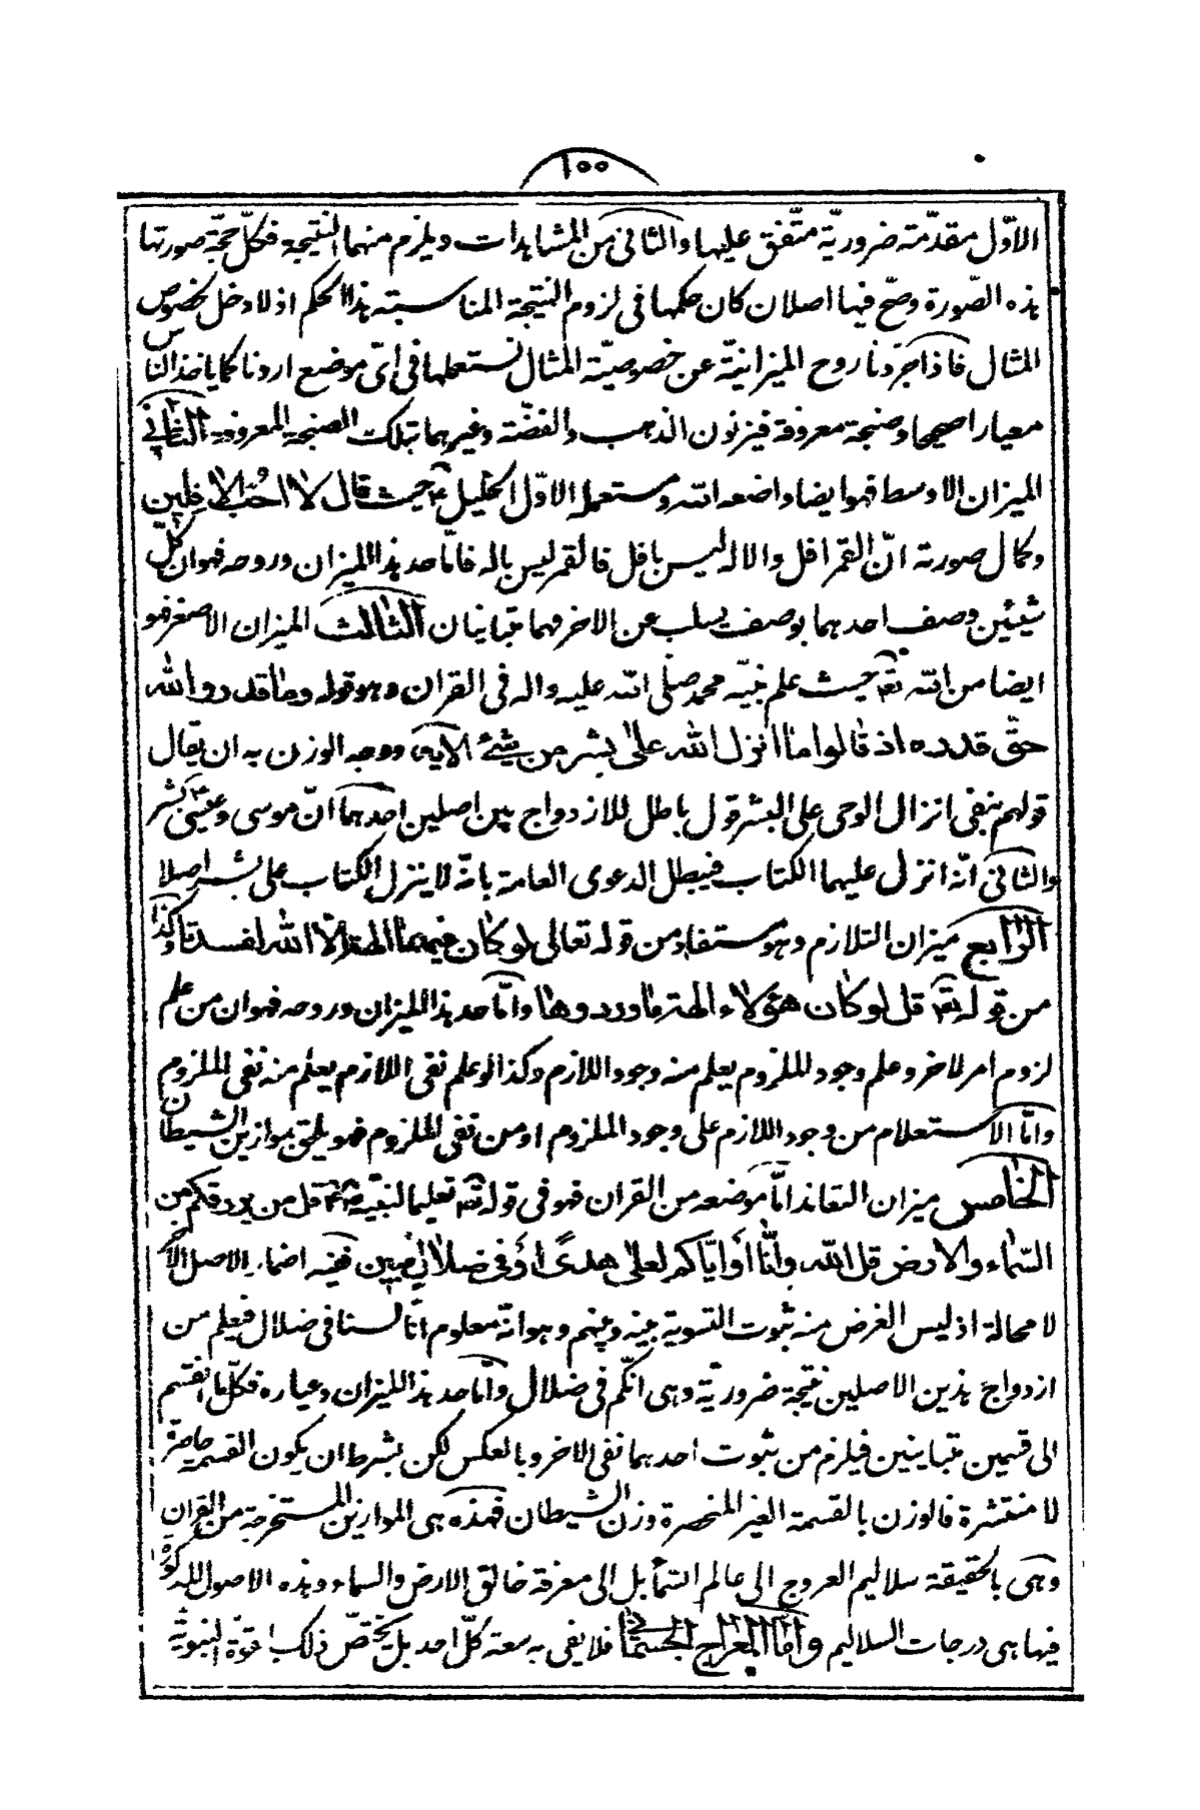 ١٠٠
الاوّل مقدّمة ضروريّة متّفق عليها والثانى من المشاهدات ويلزم منهما النتيجة فكلّ حجّة صورتها
هذه الصّورة وصحّ فيها اصلان كان حكمها فى لزوم النتيجة المناسبة هذا الحكم اذ لا دخل لخصوص
المثال فاذا جردنا روح الميزانيّة عن خصوصيّة المثال نستعملها فى اىّ موضع اردنا كما ياخذ الناس
معيارا صحيحا وصنجة معروفة فيزنون الذهب والفضّة وغيرهما بتلك الصنجة المعروفة الثانى
الميزان الاوسط فهو ايضا واضعه الله ومستعمله الاوّل الخليل ع حيث قال لا احُبّ الافلين
وكمال صورته انّ القمر افل والاله ليس بافل فالقمر ليس باله فامّا حد هذا الميزان وروحه فهو ان كلّ
شيئين وصف احدهما بوصف يسلب عن الاخر فهما متباينان الثالث الميزان الاصغر فهو
ايضا من الله تعه حيث علم نبيّه محمد صلى الله عليه واله فى القران وهو قوله وما قدروا الله
حقّ قدره اذ قالوا ما انزل الله على بشر من شئ الاية ووجه الوزن به ان يقال
قولهم بنفى انزال الوحى على البشر قول باطل للازدواج بين اصلين احدهما انّ موسى وعيسى بشر
والثانى انّه انزل عليهما الكتاب فيبطل الدعوى العامة بانّه لا ينزل الكتاب على بشر اصلا
الرّابع ميزان التلازم وهو مستفاد من قوله تعالى لو كان فيهما الهة الّا الله لفسدتا وكذا
من قوله تعه قل لو كان هؤلاء الهة ما وردوها وامّا حد هذا الميزان وروحه فهو ان من علم
لزوم امر لاخر وعلم وجود الملزوم يعلم منه وجود اللازم وكذا لو علم نفى اللازم يعلم منه نفى الملزوم
وامّا الاستعلام من وجود اللازم على وجود الملزوم او من نفى الملزوم فهو يلحق بموازين الشيطان
الخامس ميزان التعاند امّا موضعه من القران فهو فى قوله تعه تعليما لنبيّه قل من يرزقكم من
السّماء والارض قل الله وانّا او ايّاكم لعلى هدىً او فى ضلال مبين ففيه اضمار الاصل الاخر
لا محالة اذ ليس الغرض منه ثبوت التسوية بينه وبينهم وهو انّه معلوم انّا لسنا فى ضلال فيعلم من
ازدواج هذين الاصلين نتيجة ضروريّة وهى انّكم فى ضلال وامّا حد هذا الميزان وعياره فكلّ ما انقسم
الى قسمين متباينين فيلزم من ثبوت احدهما نفى الاخر وبالعكس لكن بشرط ان يكون القسمة حاصرة
لا منتشرة فالوزن بالقسمة الغير المنحصرة وزن الشيطان فهذه هى الموازين المستخرجة من القران
وهى بالحقيقة سلاليم العروج الى عالم السّماء بل الى معرفة خالق الارض والسماء وهذه الاصول المذكورة
فيها هى درجات السلاليم وامّا المعراج الجسمانى فلا يفى به سعة كلّ احد بل يختصّ ذلك بقوّة النبوّة